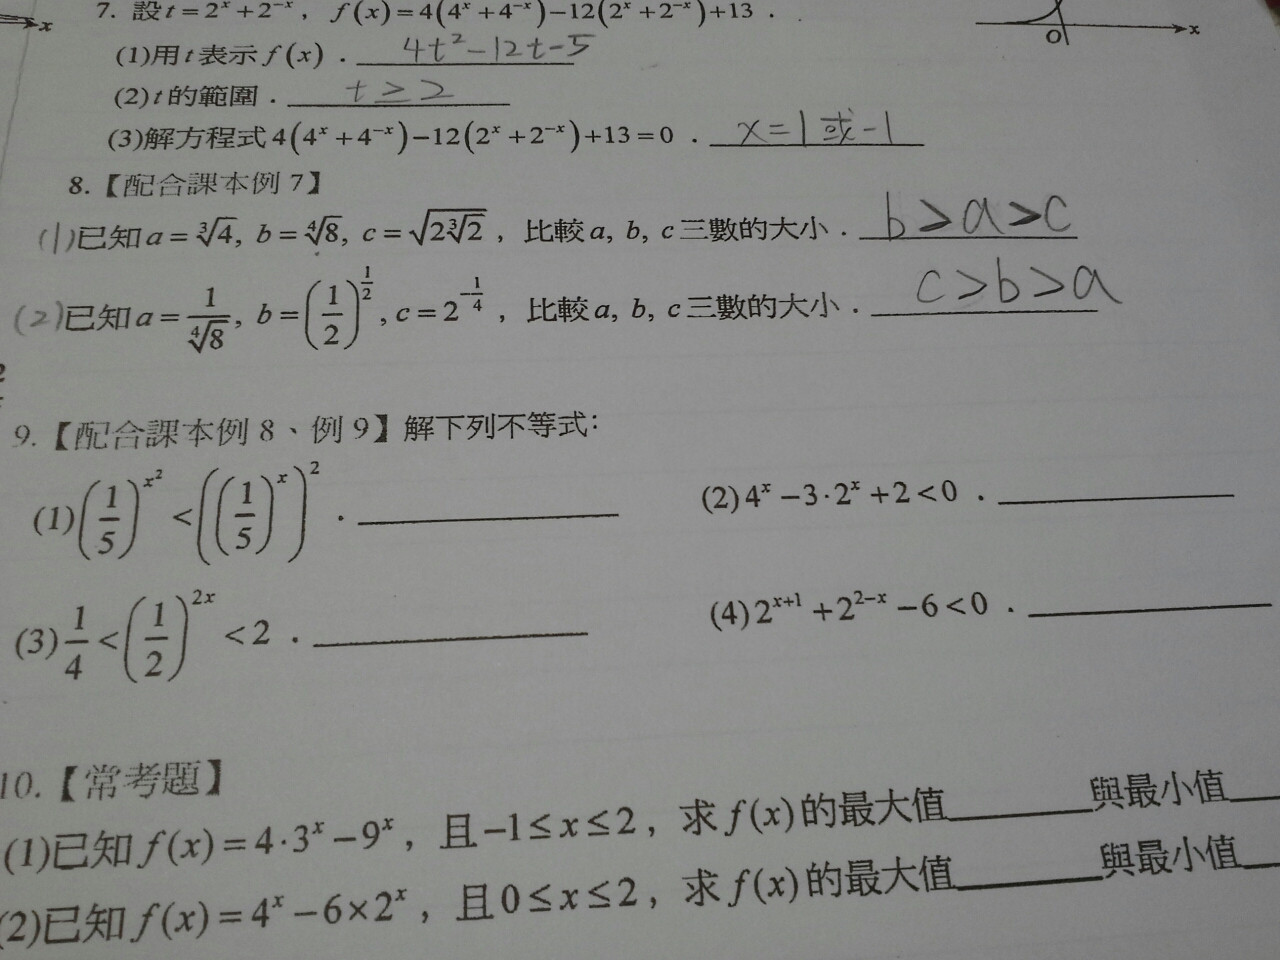 x
7. 設 t = 2^x + 2^{-x}, f(x) = 4(4^x + 4^{-x}) − 12(2^x + 2^{-x}) + 13 .
O x
(1)用 t 表示 f(x) . 4t² − 12t − 5
(2) t 的範圍 . t ≥ 2
(3)解方程式 4(4^x + 4^{-x}) − 12(2^x + 2^{-x}) + 13 = 0 . x = 1 或 −1
8.【配合課本例 7】
(1)已知 a = ∛4, b = ∜8, c = √(2∛2) , 比較 a, b, c 三數的大小 . b > a > c
(2)已知 a = 1/∜8, b = (1/2)^{1/2}, c = 2^{-1/4} , 比較 a, b, c 三數的大小 . c > b > a
9.【配合課本例 8、例 9】解下列不等式:
(1) (1/5)^{x²} < ((1/5)^x)² . (2) 4^x − 3·2^x + 2 < 0 .
(3) 1/4 < (1/2)^{2x} < 2 . (4) 2^{x+1} + 2^{2−x} − 6 < 0 .
10.【常考題】
(1)已知 f(x) = 4·3^x − 9^x , 且 −1 ≤ x ≤ 2, 求 f(x) 的最大值 與最小值
(2)已知 f(x) = 4^x − 6×2^x , 且 0 ≤ x ≤ 2, 求 f(x) 的最大值 與最小值